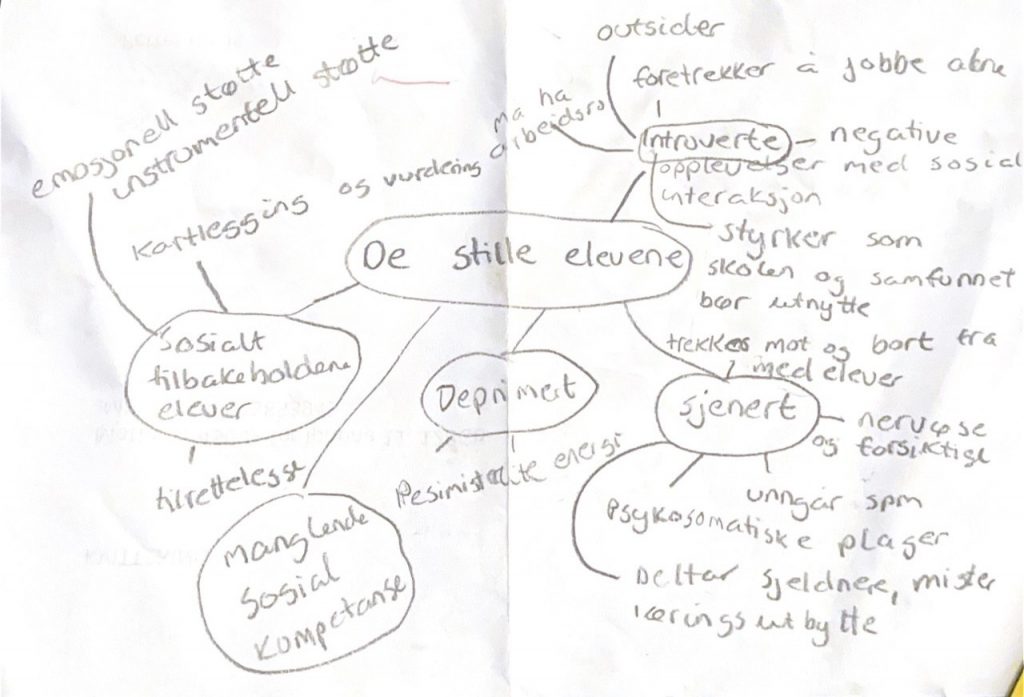 outsider
foretrekker å jobbe alene
må ha
arbeidsro
Introverte - negative
opplevelser med sosial
interaksjon
styrker som
skolen og samfunnet
bør utnytte
emosjonell støtte
instrumentell støtte
Kartlessing og vurdering
De stille elevene
Sosialt
tilbakeholdene
elever
tilrettelesst
Deprimert
Pesimistisk
lite energi
manglende
sosial
kompetanse
trekkes mot og bort fra
med elever
sjenert
- nervøse
og forsiktige
unngår spm
Psykosomatiske plager
Deltar sjeldnere, mister
læringsutbytte